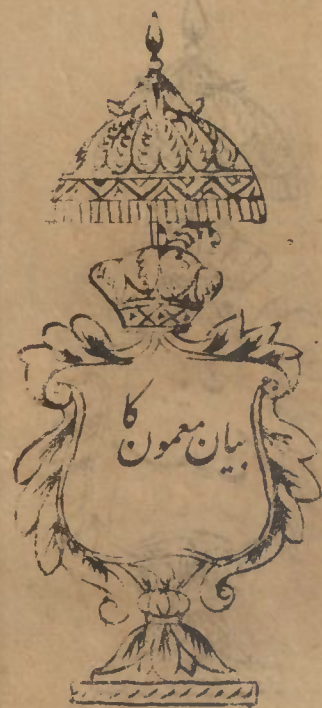 بیان معمون کا